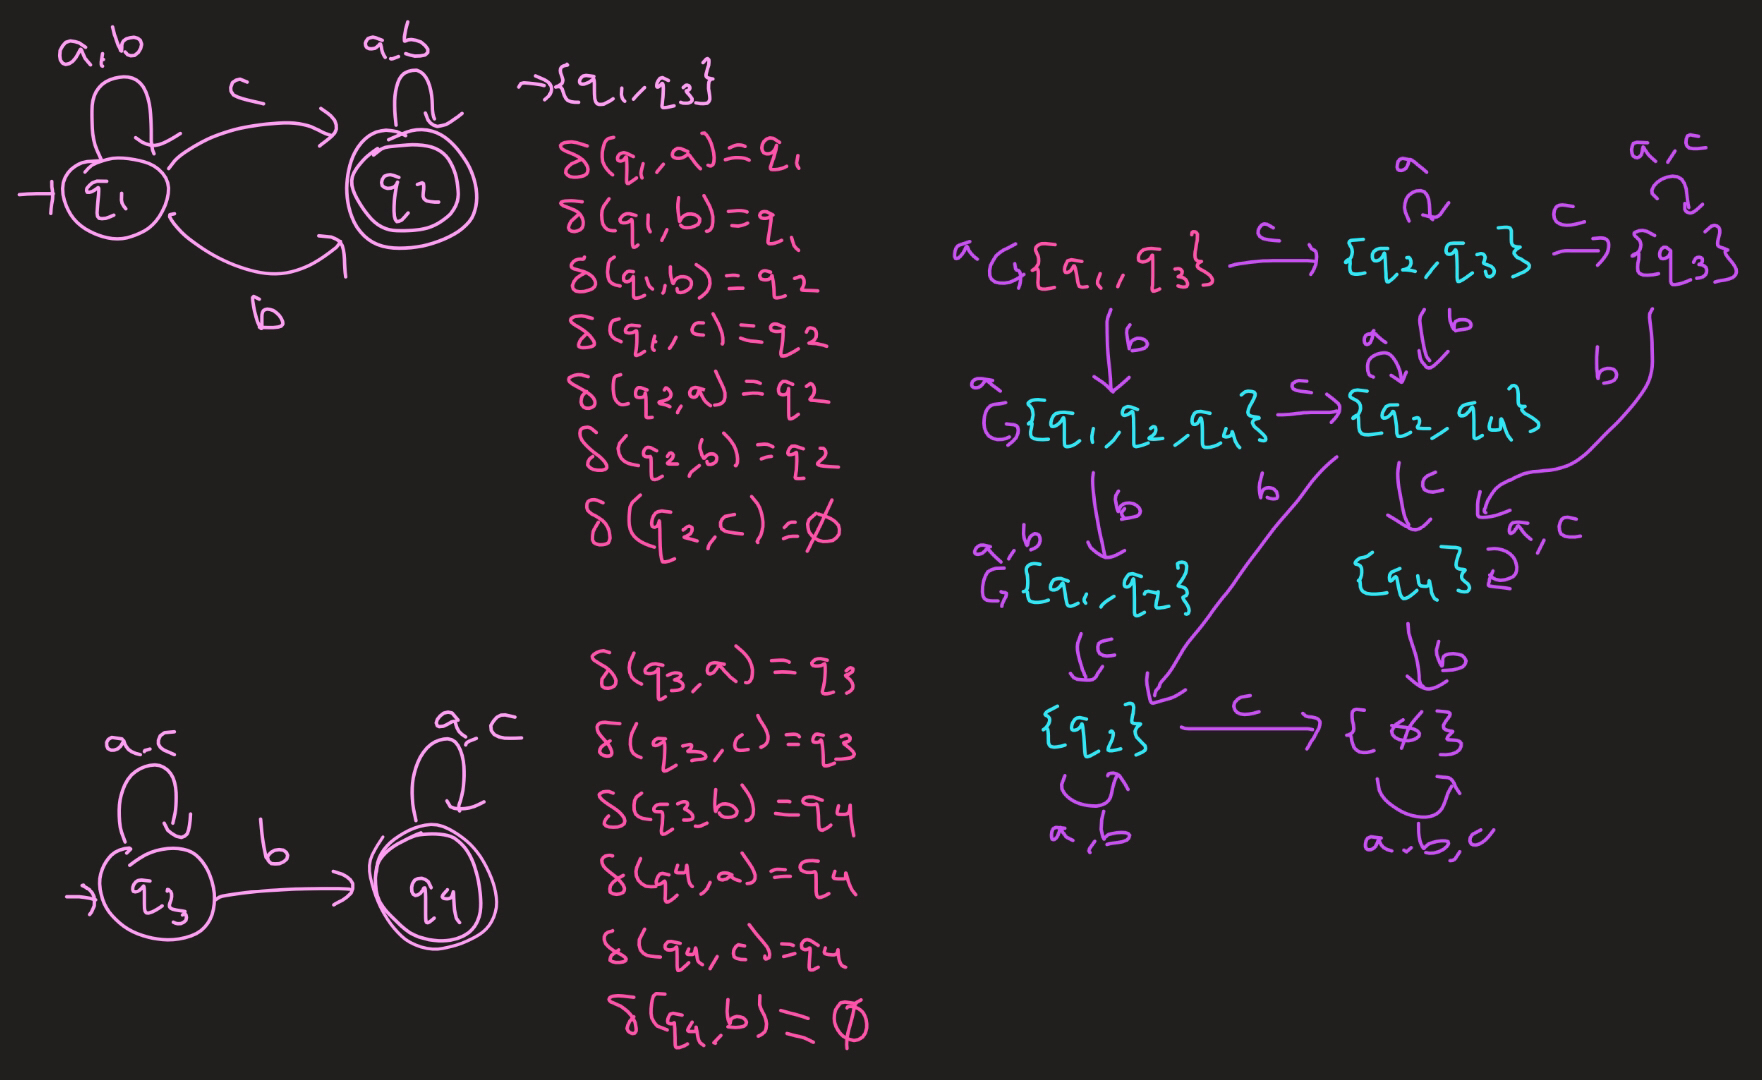 a,b
c
q1
q2
a,b
b
→{q1,q3}
δ(q1,a)=q1
δ(q1,b)=q1
δ(q1,b)=q2
δ(q1,c)=q2
δ(q2,a)=q2
δ(q2,b)=q2
δ(q2,c)=∅
a,c
q3
b
a,c
q4
δ(q3,a)=q3
δ(q3,c)=q3
δ(q3,b)=q4
δ(q4,a)=q4
δ(q4,c)=q4
δ(q4,b)=∅
a
a,c
a {q1,q3} c {q2,q3} c {q3}
b
b
a
b
a
{q1,q2,q4} c {q2,q4}
b
b
c
a,b
a,c
{q1,q2}
{q4}
c
b
{q2} c {∅}
a,b
a,b,c